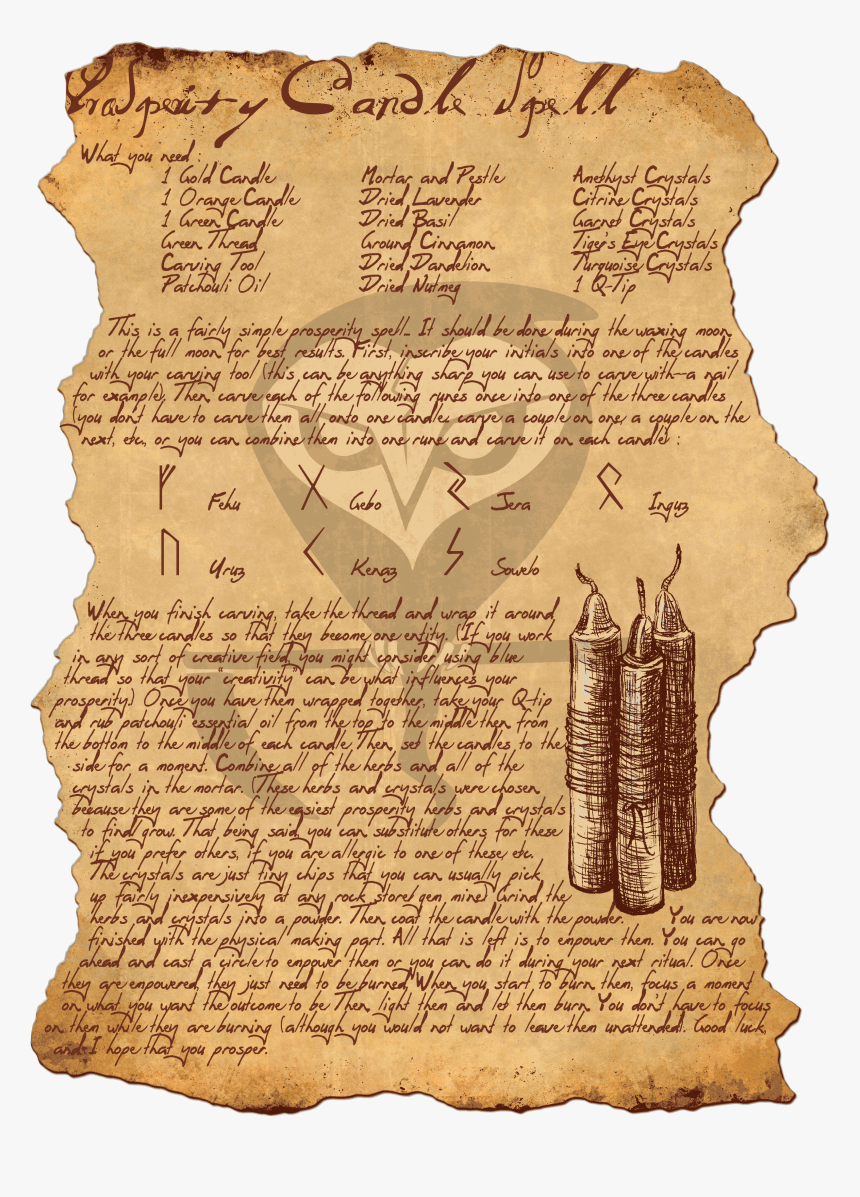 Prosperity Candle Spell
What you need :
1 Gold Candle Mortar and Pestle Amethyst Crystals
1 Orange Candle Dried Lavender Citrine Crystals
1 Green Candle Dried Basil Garnet Crystals
Green Thread Ground Cinnamon Tiger's Eye Crystals
Carving Tool Dried Dandelion Turquoise Crystals
Patchouli Oil Dried Nutmeg 1 Q-Tip
This is a fairly simple prosperity spell... It should be done during the waxing moon
or the full moon for best results. First, inscribe your initials into one of the candles
with your carving tool (this can be anything sharp you can use to carve with--a nail
for example). Then carve each of the following runes once into one of the three candles
(you don't have to carve them all onto one candle, carve a couple on one, a couple on the
next, etc., or you can combine them into one rune and carve it on each candle) :
ᚠ Fehu ᚷ Gebo ᛃ Jera ᛟ Inguz
ᚢ Uruz ᚲ Kenaz ᛊ Sowelo
When you finish carving, take the thread and wrap it around
the three candles so that they become one entity. (If you work
in any sort of creative field, you might consider using blue
thread so that your "creativity" can be what influences your
prosperity.) Once you have them wrapped together, take your Q-tip
and rub patchouli essential oil from the top to the middle then from
the bottom to the middle of each candle. Then, set the candles to the
side for a moment. Combine all of the herbs and all of the
crystals in the mortar. (These herbs and crystals were chosen
because they are some of the easiest prosperity herbs and crystals
to find/grow. That being said, you can substitute others for these
if you prefer others, if you are allergic to one of these, etc.
The crystals are just tiny chips that you can usually pick
up fairly inexpensively at any rock store/gem mine.) Grind the
herbs and crystals into a powder. Then coat the candle with the powder. You are now
finished with the physical making part. All that is left is to empower them. You can go
ahead and cast a circle to empower them or you can do it during your next ritual. Once
they are empowered, they just need to be burned. When you start to burn them, focus a moment
on what you want the outcome to be. Then light them and let them burn. You don't have to focus
on them while they are burning (although you would not want to leave them unattended). Good luck,
and I hope that you prosper.